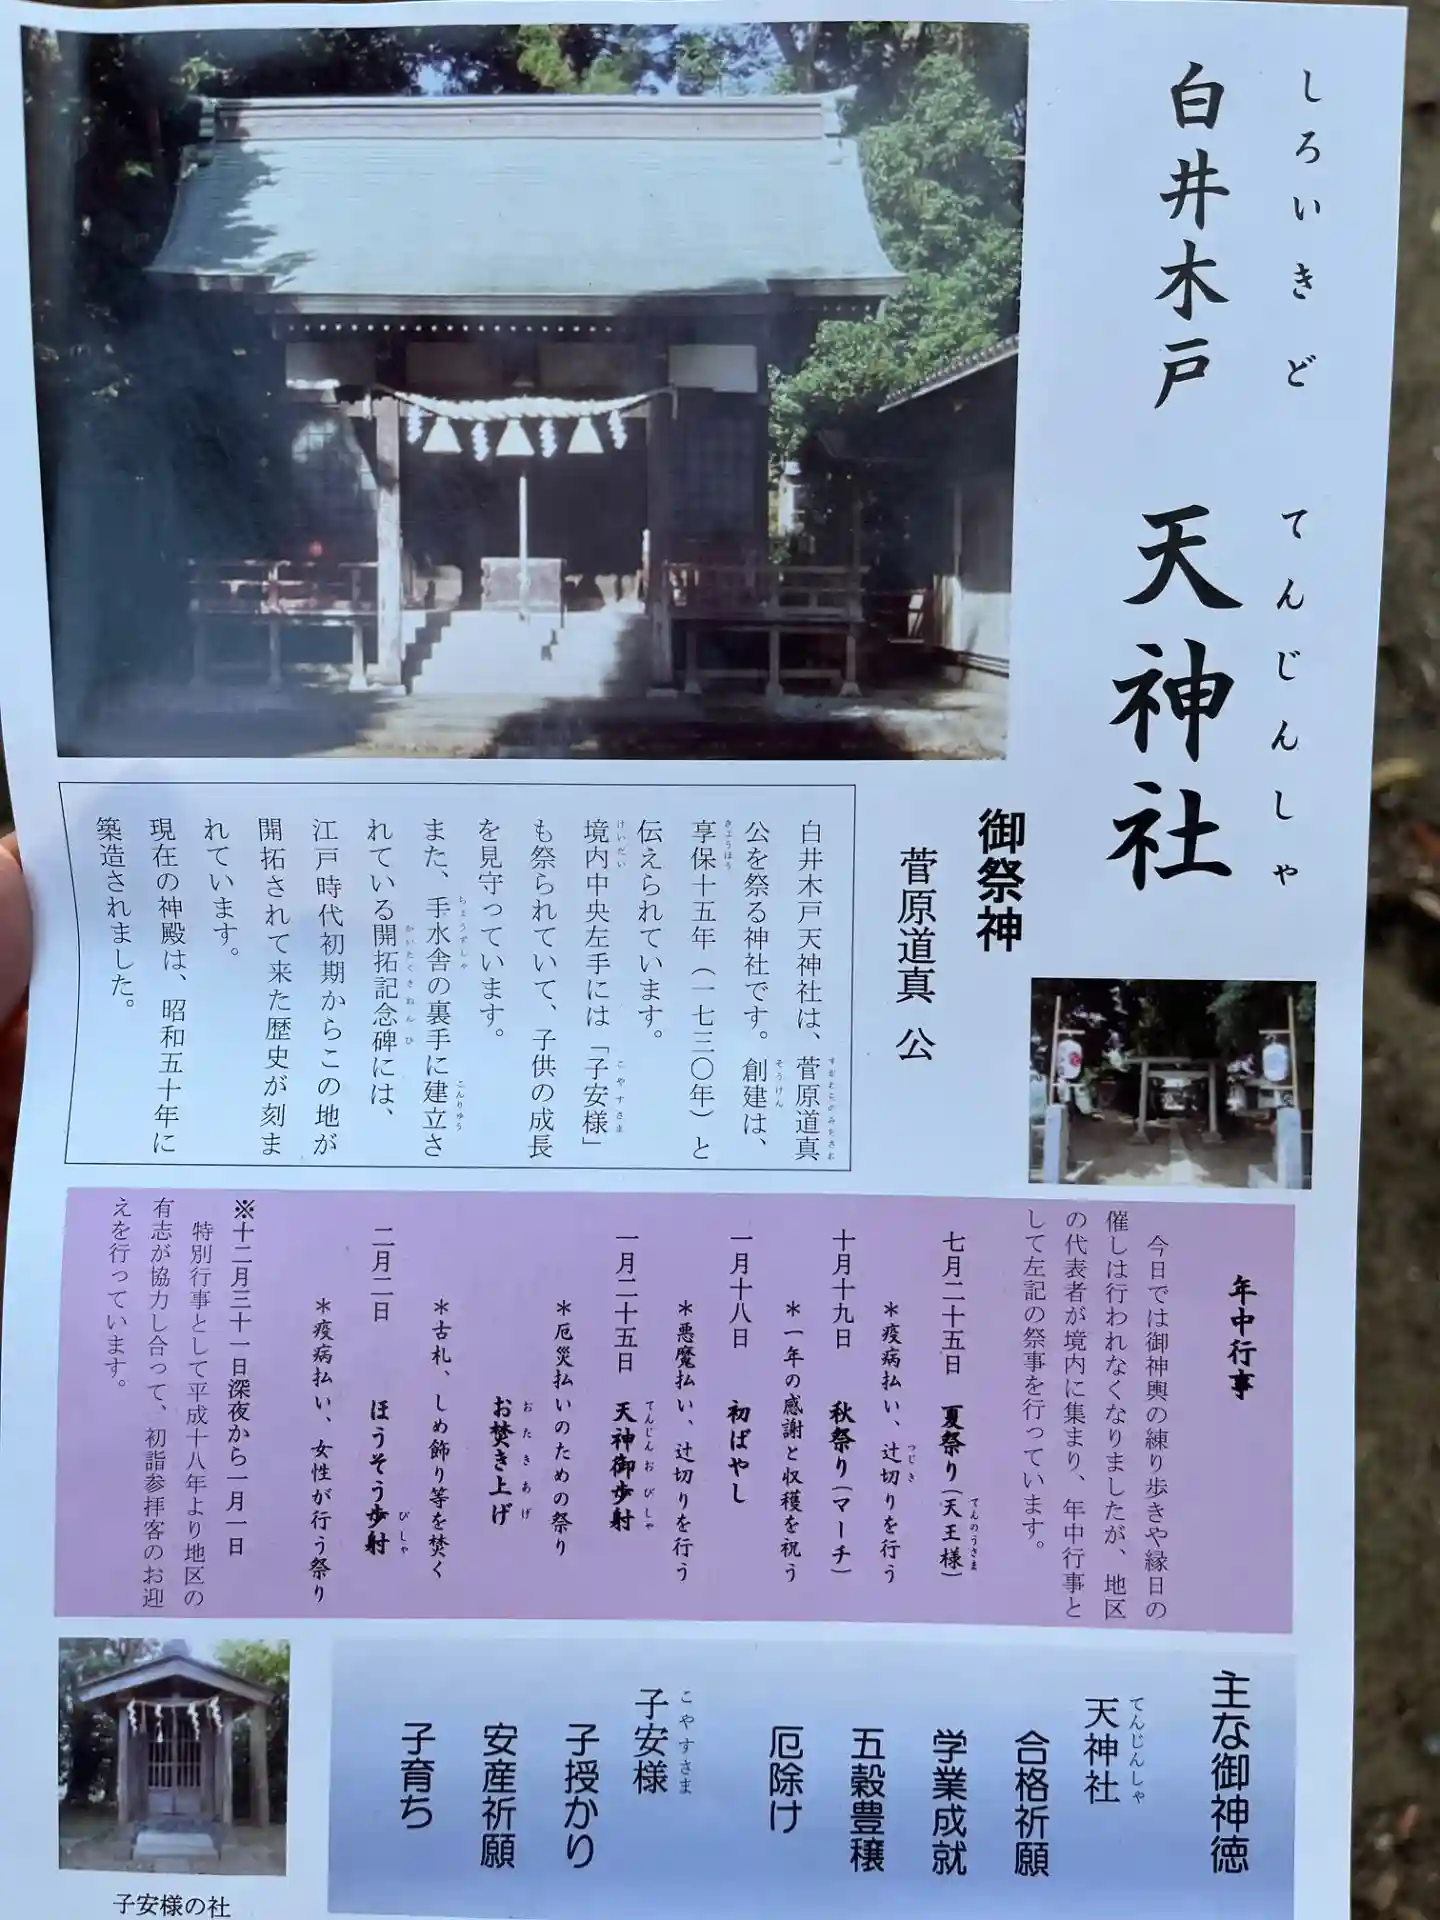 しろいきど てんじんしゃ
白井木戸 天神社
御祭神
菅原道真 公
白井木戸天神社は、菅原道真
すがわらのみちざね
公を祭る神社です。創建は、
そうけん
享保十五年（一七三〇年）と
きょうほう
伝えられています。
境内中央左手には「子安様」
けいだい こやすさま
も祭られていて、子供の成長
を見守っています。
また、手水舎の裏手に建立さ
ちょうずしゃ こんりゅう
れている開拓記念碑には、
かいたくきねんひ
江戸時代初期からこの地が
開拓されて来た歴史が刻ま
れています。
現在の神殿は、昭和五十年に
築造されました。
年中行事
今日では御神輿の練り歩きや縁日の
催しは行われなくなりましたが、地区
の代表者が境内に集まり、年中行事と
して左記の祭事を行っています。
七月二十五日 夏祭り（天王様）
てんのうさま
＊疫病払い、辻切りを行う
つじき
十月十九日 秋祭り（マーチ）
＊一年の感謝と収穫を祝う
一月十八日 初ばやし
＊悪魔払い、辻切りを行う
一月二十五日 天神御歩射
てんじんおびしゃ
＊厄災払いのための祭り
お焚き上げ
おたきあげ
＊古札、しめ飾り等を焚く
二月二日 ほうそう歩射
びしゃ
＊疫病払い、女性が行う祭り
※十二月三十一日深夜から一月一日
特別行事として平成十八年より地区の
有志が協力し合って、初詣参拝客のお迎
えを行っています。
主な御神徳
天神社
てんじんしゃ
合格祈願
学業成就
五穀豊穣
厄除け
子安様
こやすさま
子授かり
安産祈願
子育ち
子安様の社